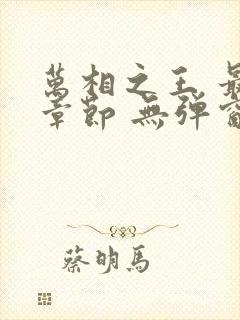 萬相之王 最
章節 無彈窗
蔡明馬